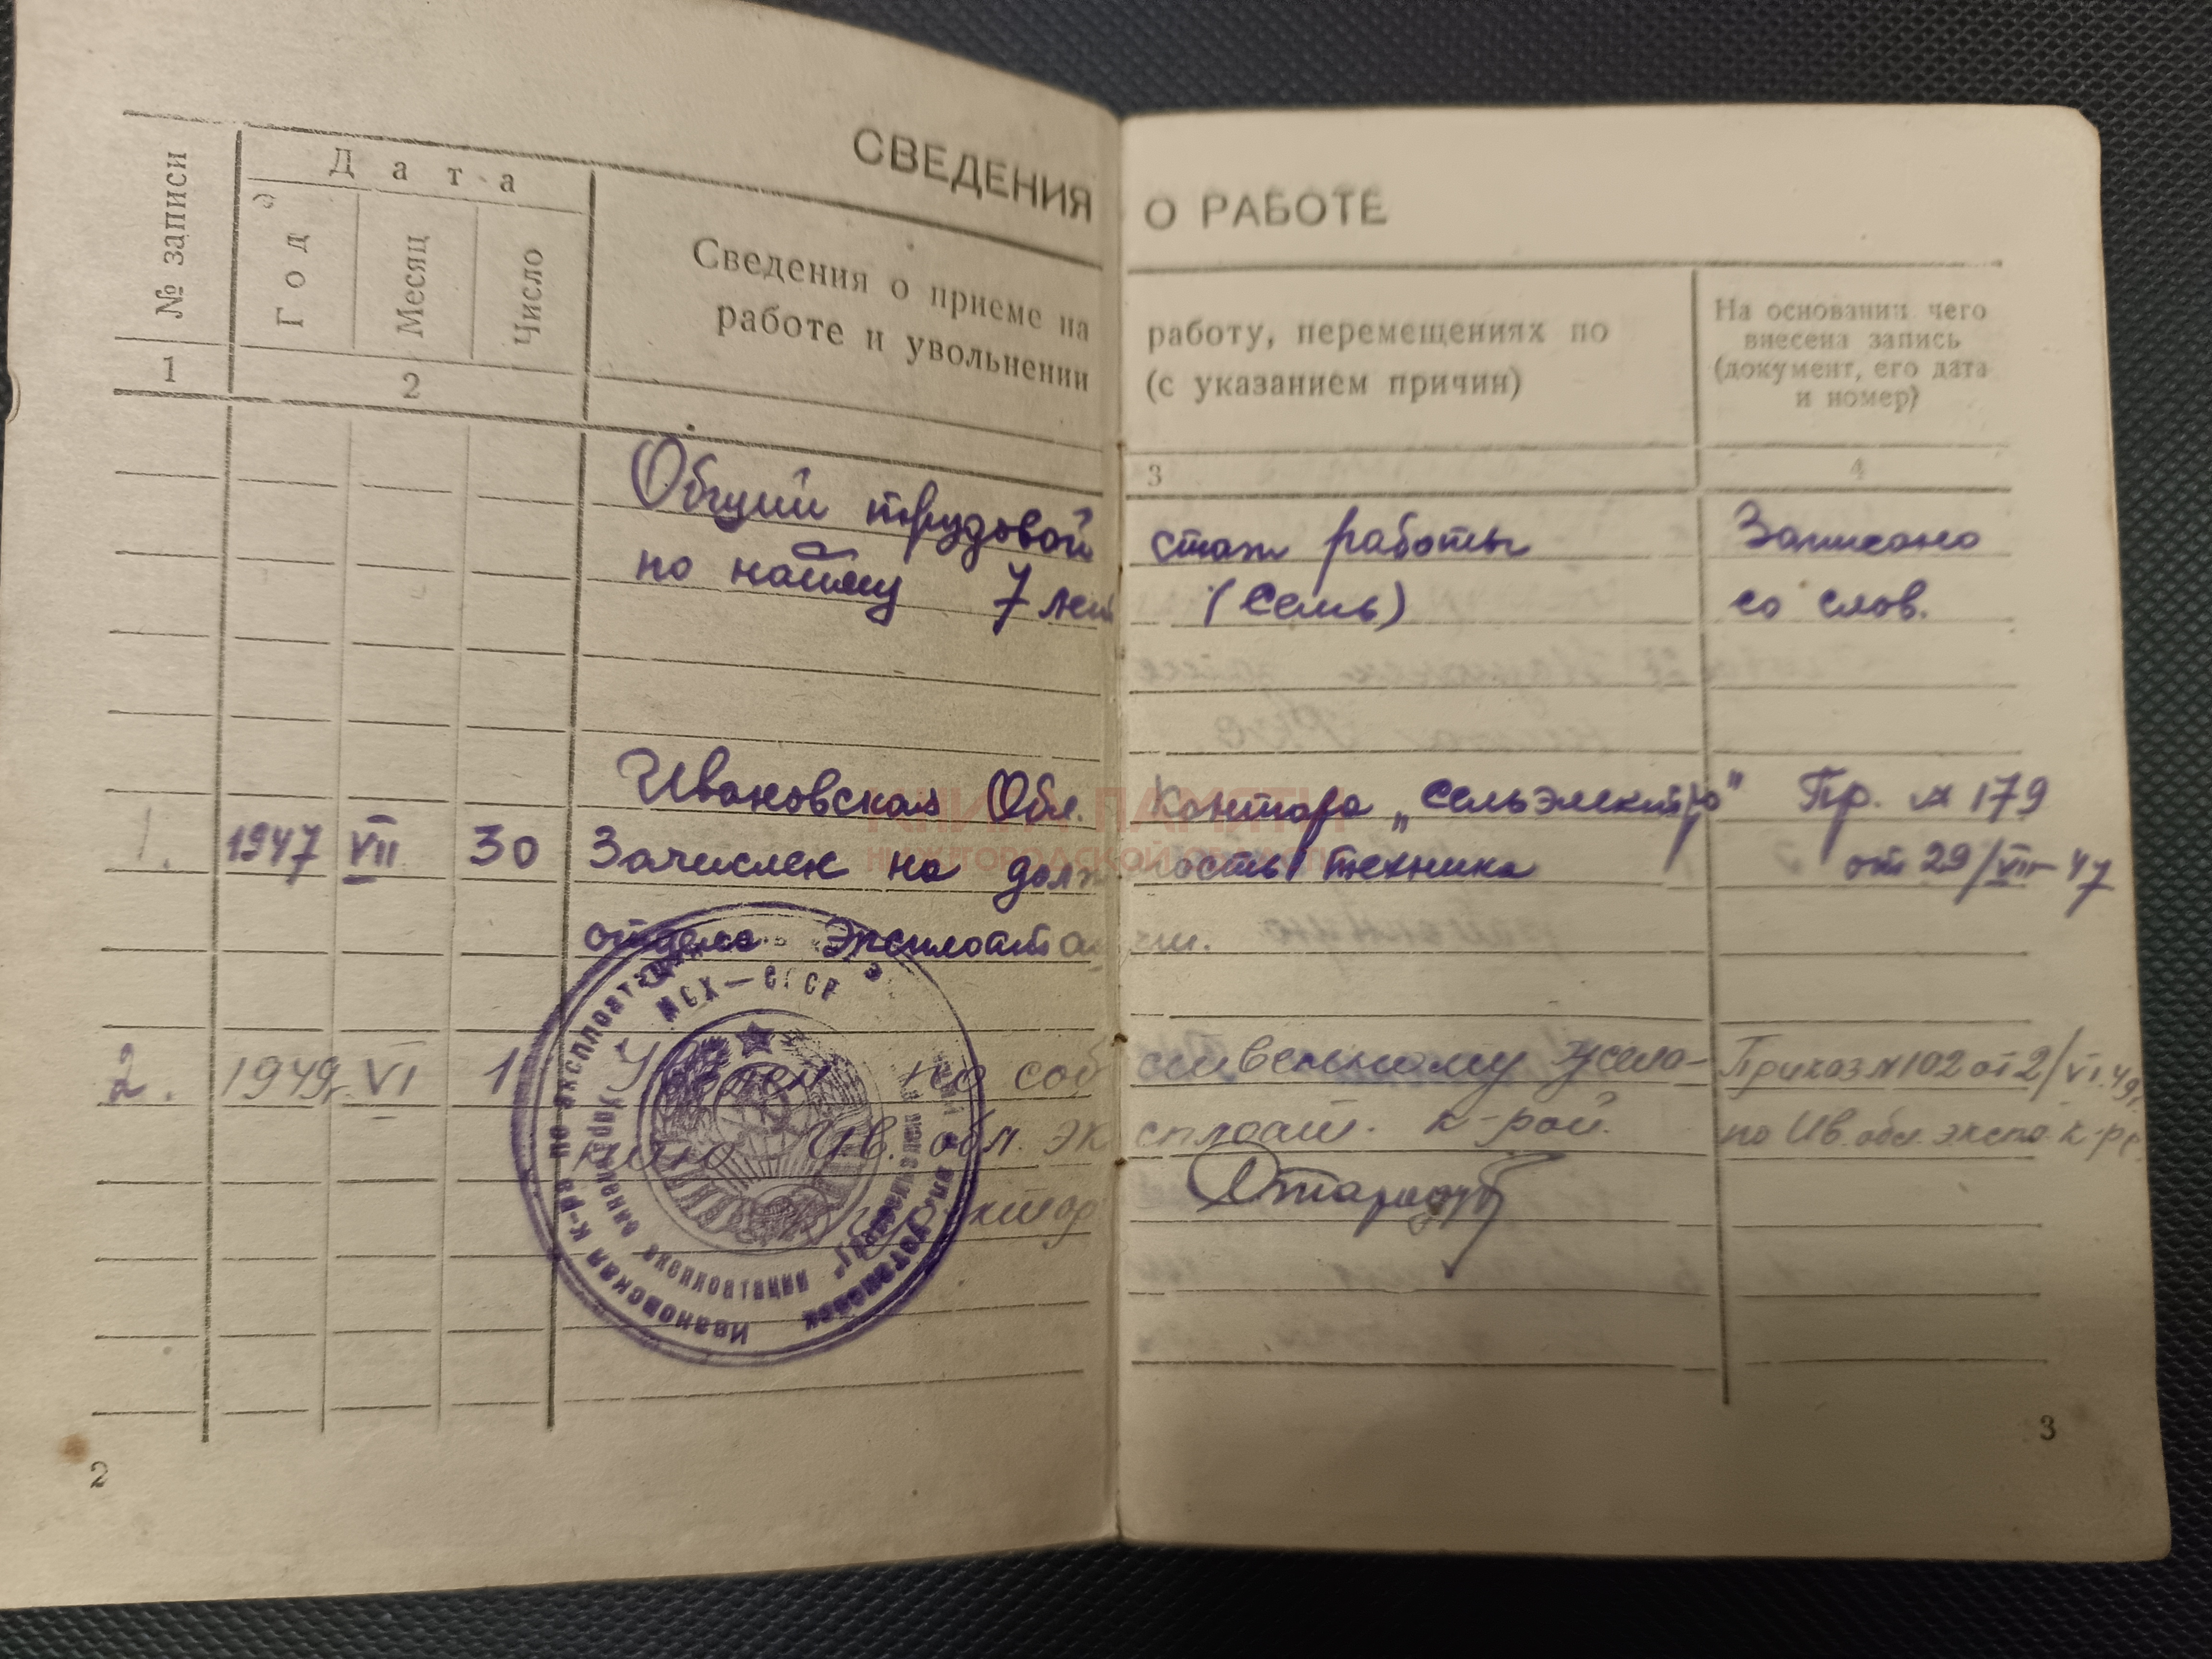 СВЕДЕНИЯ О РАБОТЕ
№ записи
Дата
Год
Месяц
Число
Сведения о приеме на работу, перемещениях по
работе и увольнении (с указанием причин)
На основании чего
внесена запись
(документ, его дата
и номер)
1 2 3 4
Общий трудовой стаж работы Записано
по найму 7 лет (Семь) со слов.
Ивановская Обл. Контора „Сельэлектро" Пр. № 179
1. 1947 VII 30 Зачислен на должность техника от 29/VII-47
отдела Эксплоатации.
2. 1949г. VI 1 Уволен по собственному жела- Приказ №102 от 2/VI.49г.
нию Ив. обл. эксплоат. к-рой. по Ив. обл. экспл. к-ре
МСХ—СССР
Ивановская к-ра по эксплоатации
2
3
КНИГА ПАМЯТИ
НИЖЕГОРОДСКОЙ ОБЛАСТИ